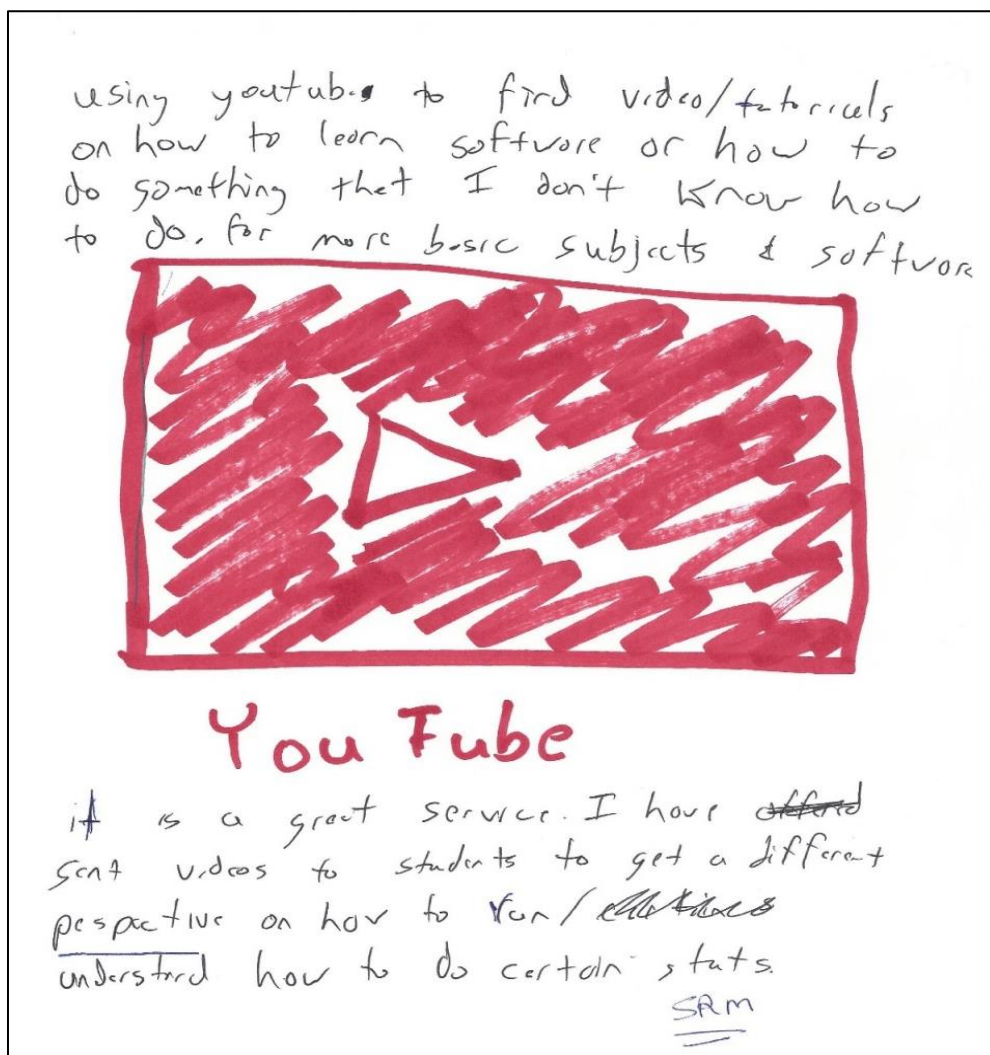 using youtube to find video/tutoricels
on how to learn software or how to
do something that I don't know how
to do. for more basic subjects & software
You Tube
it is a great service. I have offered
sent videos to students to get a different
pespective on how to run/
understand how to do certain stats.
SRM